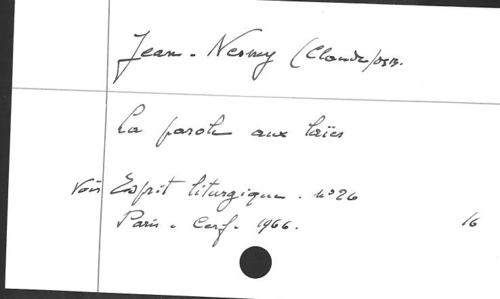 Jean-Nesmy (Claude) OSB.
La parole aux laïcs
Voir Esprit liturgique. n°26
Paris. Cerf. 1966. 16